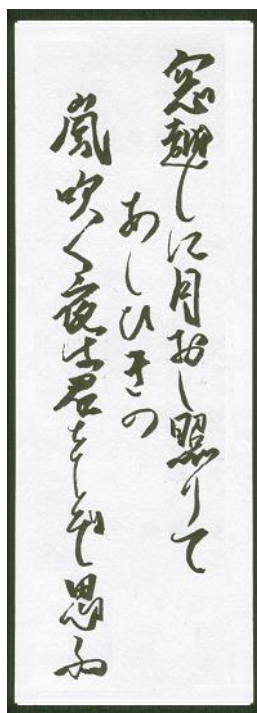 窓越しに月おし照りて
あしひきの
嵐吹く夜は君をしぞ思ふ